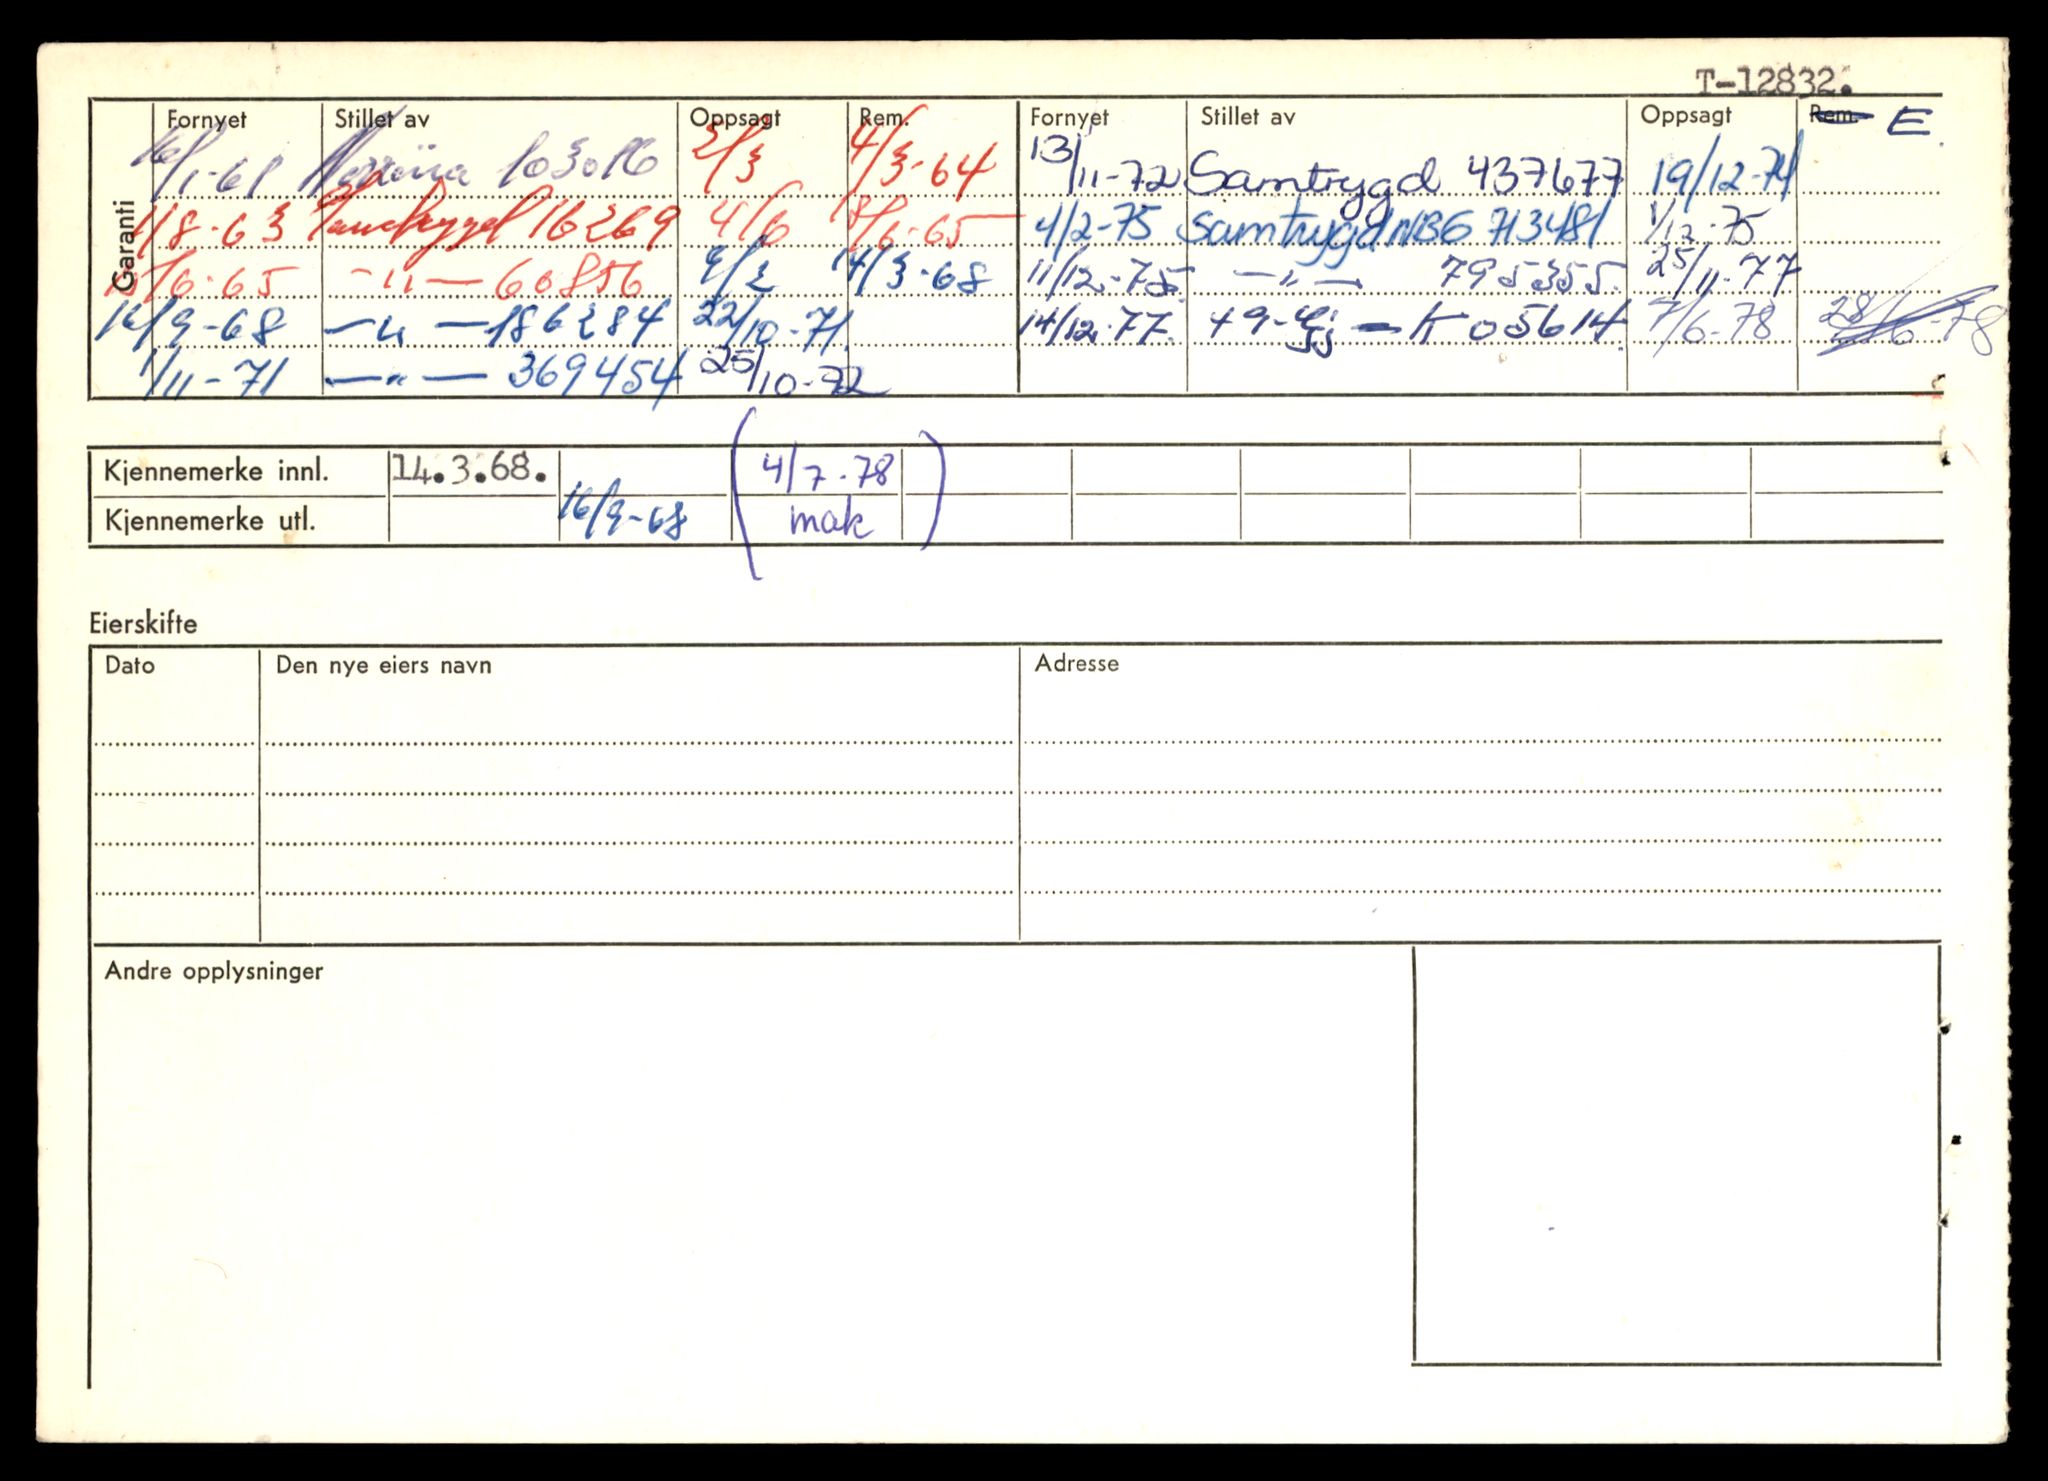 T-12832.
Garanti
Fornyet Stillet av Oppsagt Rem. Fornyet Stillet av Oppsagt Rem. E
16/1-61 103016 2/3 4/3-64 13/11-72 Samtrygd 437677 19/12-74
1/8-63 Samtrygd 16269 4/6 /6-65 4/2-75 Samtrygd NB6 713481 1/12-75
15/6-65 -"- 60856 9/2 14/3-68 11/12-75 -"- 795355 25/11-77
16/9-68 -"- 186284 22/10-71 14/12-77 49-Gj - K 05614 7/6-78 28/6-78
1/11-71 -"- 369454 25/10-72
Kjennemerke innl. 14.3.68. (4/7-78
Kjennemerke utl. 16/9-68 mak)
Eierskifte
Dato Den nye eiers navn Adresse
Andre opplysninger